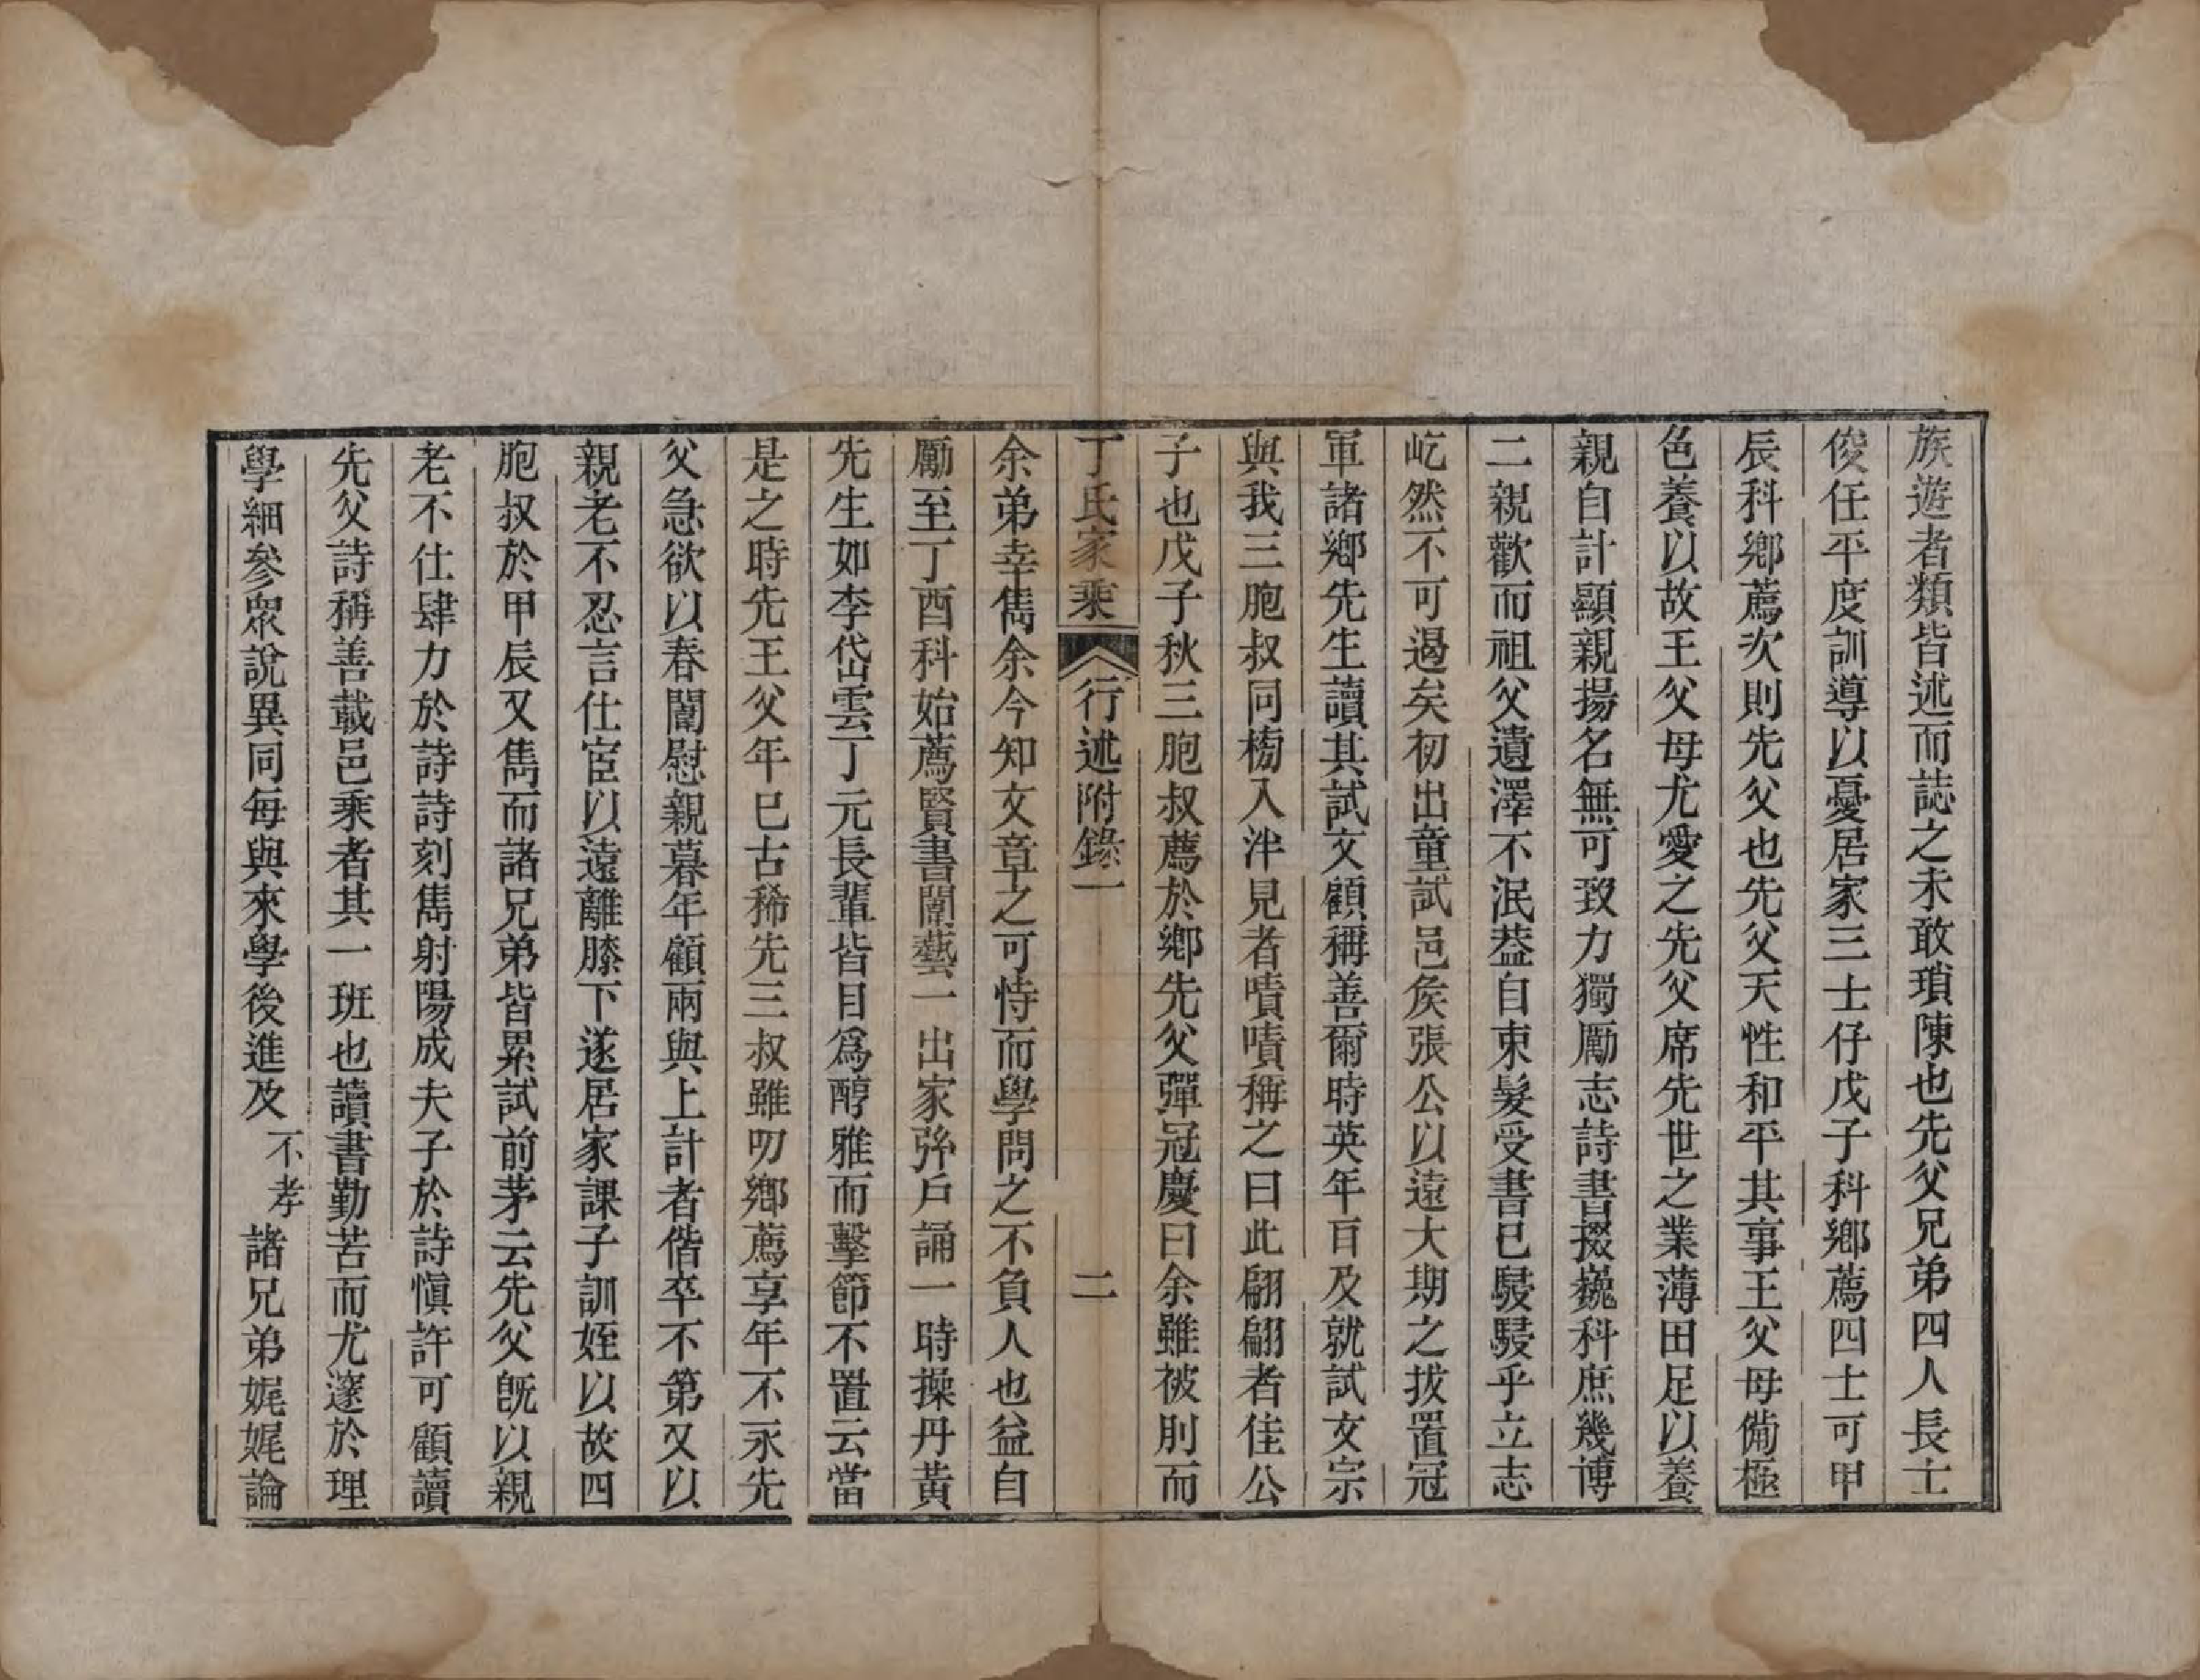 族遊者類皆述而誌之未敢瑣陳也先父兄弟四人長士
俊任平度訓導以憂居家三士仔戊子科鄉薦四士可甲
辰科鄉薦次則先父也先父天性和平其事王父母備極
色養以故王父母尤愛之先父席先世之業薄田足以養
親自計顯親揚名無可致力獨勵志詩書掇巍科庶幾博
二親歡而祖父遺澤不泯葢自束髮受書已駸駸乎立志
屹然不可遏矣初出童試邑矦張公以遠大期之拔置冠
軍諸鄉先生讀其試文顧稱善爾時英年百及就試文宗
與我三胞叔同榜入泮見者嘖嘖稱之曰此翩翩者佳公
子也戊子秋三胞叔薦於鄉先父彈冠慶曰余雖被刖而
丁氏家乘 行述附錄一 二
余弟幸雋余今知文章之可恃而學問之不負人也益自
勵至丁酉科始薦賢書闈藝一出家弦戶誦一時操丹黃
先生如李岱雲丁元長輩皆目爲醇雅而擊節不置云當
是之時先王父年巳古稀先三叔雖叨鄉薦享年不永先
父急欲以春闈慰親暮年顧兩與上計者偕卒不第又以
親老不忍言仕宦以遠離膝下遂居家課子訓姪以故四
胞叔於甲辰又雋而諸兄弟皆累試前茅云先父旣以親
老不仕肆力於詩詩刻雋射陽成夫子於詩愼許可顧讀
先父詩稱善載邑乘者其一班也讀書勤苦而尤邃於理
學細參眾說異同每與來學後進及不孝諸兄弟娓娓論